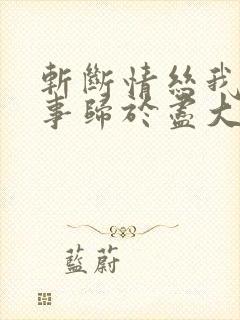 斬斷情絲我
事歸於盡大
藍蔚